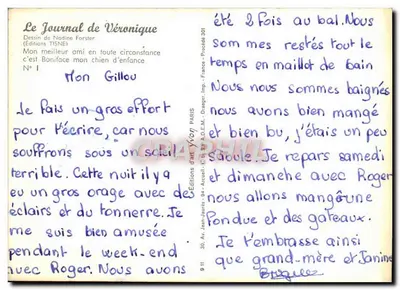 Le Journal de Véronique
Dessin de Nadine Forster
(Éditions TISNÉ)
Mon meilleur ami en toute circonstance
c'est Boniface mon chien d'enfance
N° 1
Mon Gillou
Je fais un gros effort
pour t'écrire, car nous
souffrons sous un soleil
terrible. Cette nuit il y a
eu un gros orage avec des
éclairs et du tonnerre. Je
me suis bien amusée
pendant le week-end
avec Roger. Nous avons
Editions d'art Yvon PARIS
été 2 fois au bal. Nous
sommes restés tout le
temps en maillot de bain
Nous nous sommes baignés
nous avons bien mangé
et bien bu, j'étais un peu
saoule. Je repars samedi
et dimanche avec Roger
nous allons manger une
fondue et des gateaux.
Je t'embrasse ainsi
que grand-mère et Janine